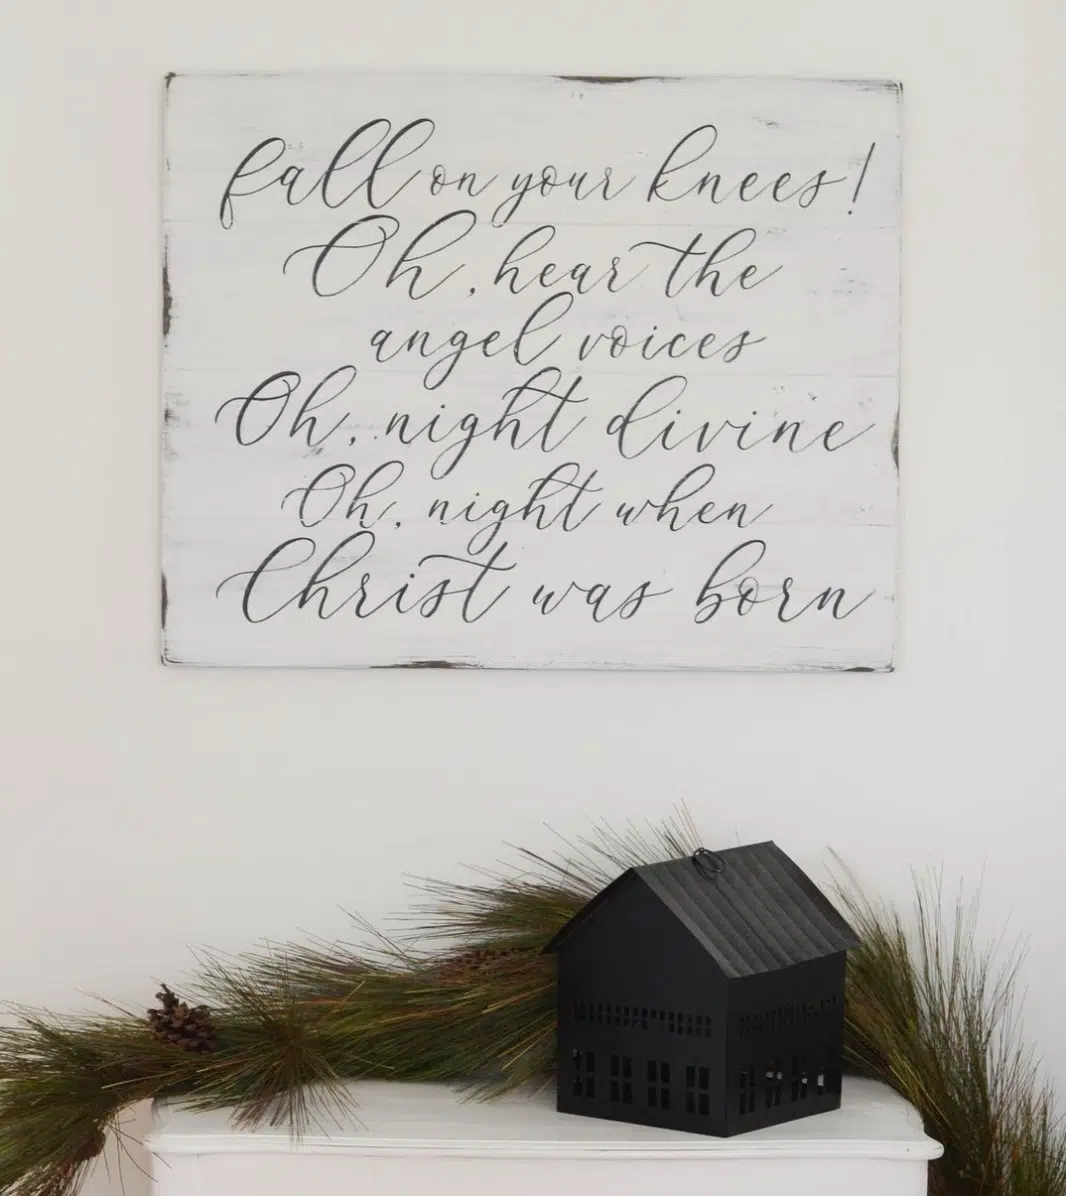 fall on your knees!
Oh, hear the
angel voices
Oh, night divine
Oh, night when
Christ was born